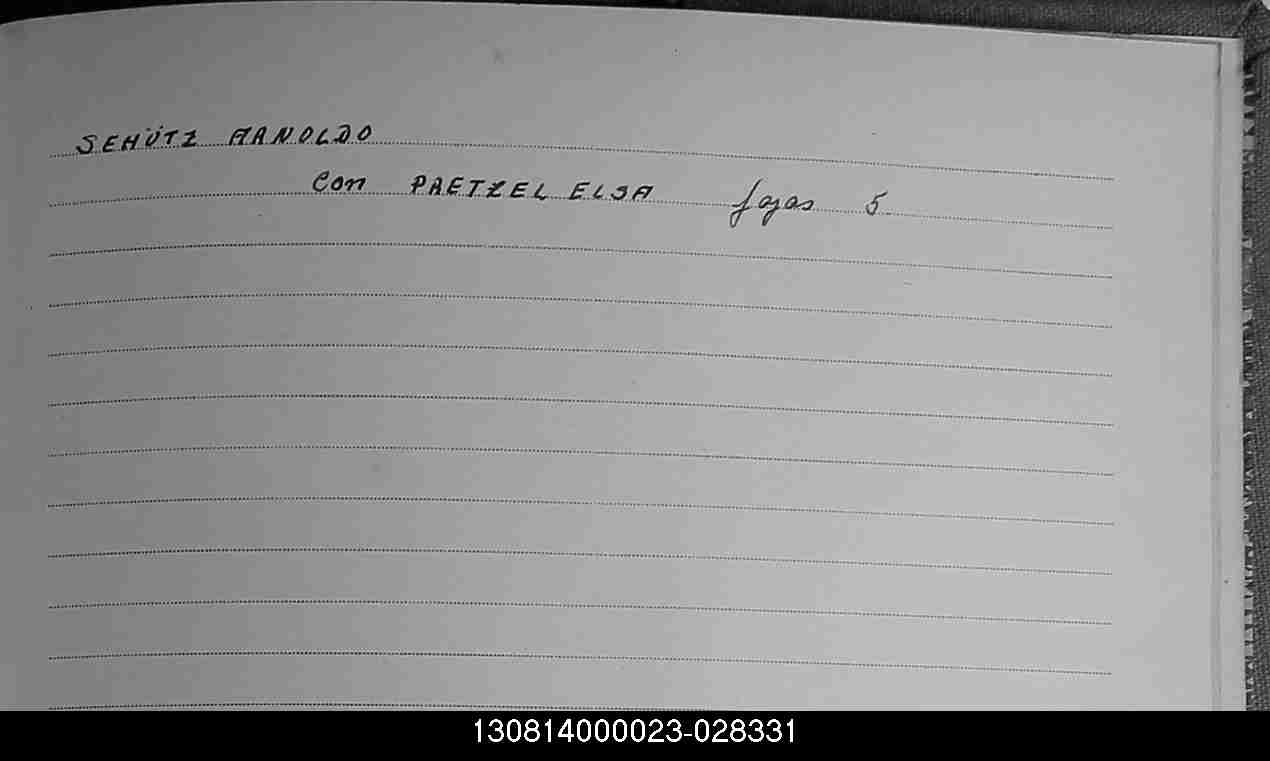 SEHÜTZ ARNOLDO
Con PRETZEL ELSA fojas 5
130814000023-028331